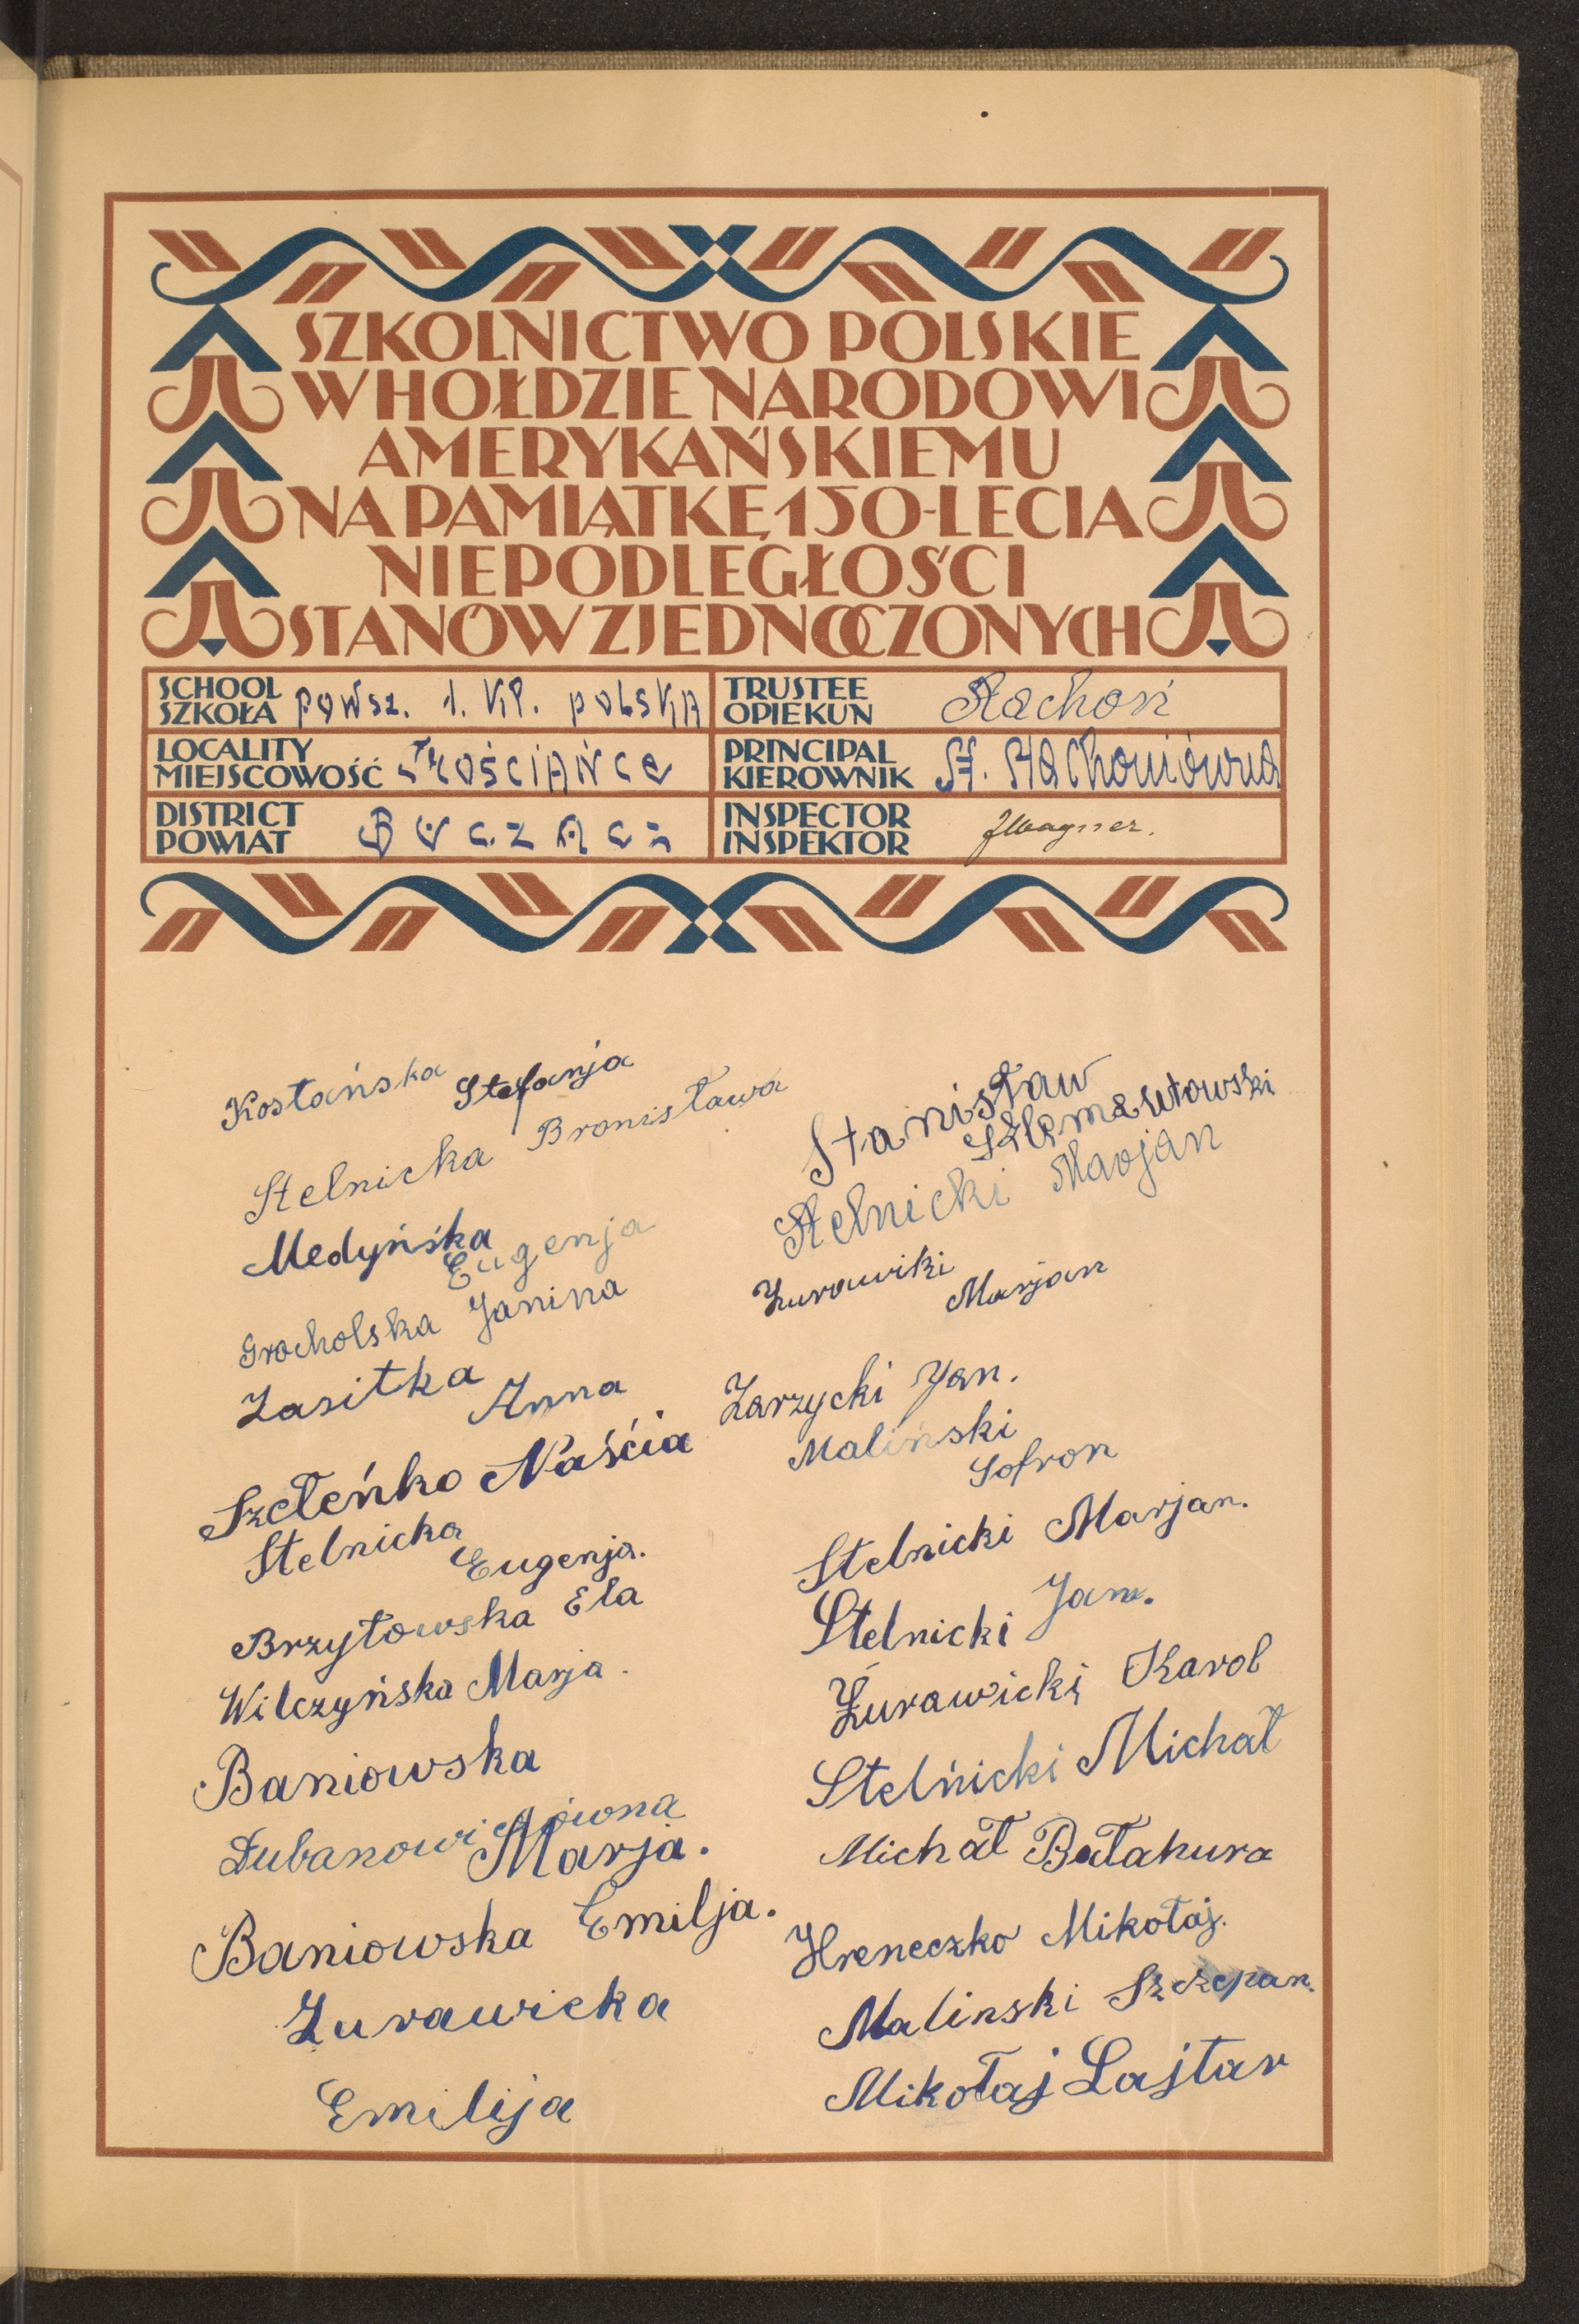 SZKOLNICTWO POLSKIE
W HOŁDZIE NARODOWI
AMERYKAŃSKIEMU
NA PAMIĄTKĘ 150-LECIA
NIEPODLEGŁOŚCI
STANÓW ZJEDNOCZONYCH
SCHOOL
SZKOŁA powsz. 1. kl. polska
TRUSTEE
OPIEKUN Stachoń
LOCALITY
MIEJSCOWOŚĆ Trościańce
PRINCIPAL
KIEROWNIK St. Stachoniówna
DISTRICT
POWIAT Buczacz
INSPECTOR
INSPEKTOR JWagner.
Kostańska Stefanja
Stelnicka Bronisława
Medyńska
Eugenja
Grocholska Janina
Zasitka
Anna
Szeteńko Naścia
Stelnicka
Eugenja.
Brzytowska Ela
Wilczyńska Marja.
Baniowska
Marja.
Baniowska Emilja.
Żurawicka
Emilija
Stanisław
Stelnicki Marjan
Zurawiki
Marjan
Zarzycki Jan.
Maliński
Sofron
Stelnicki Marjan.
Stelnicki Jan.
Żurawicki Karol
Stelnicki Michał
Michał Bałakura
Hreneczko Mikołaj.
Malinski Szczepan.
Mikołaj Lajtar